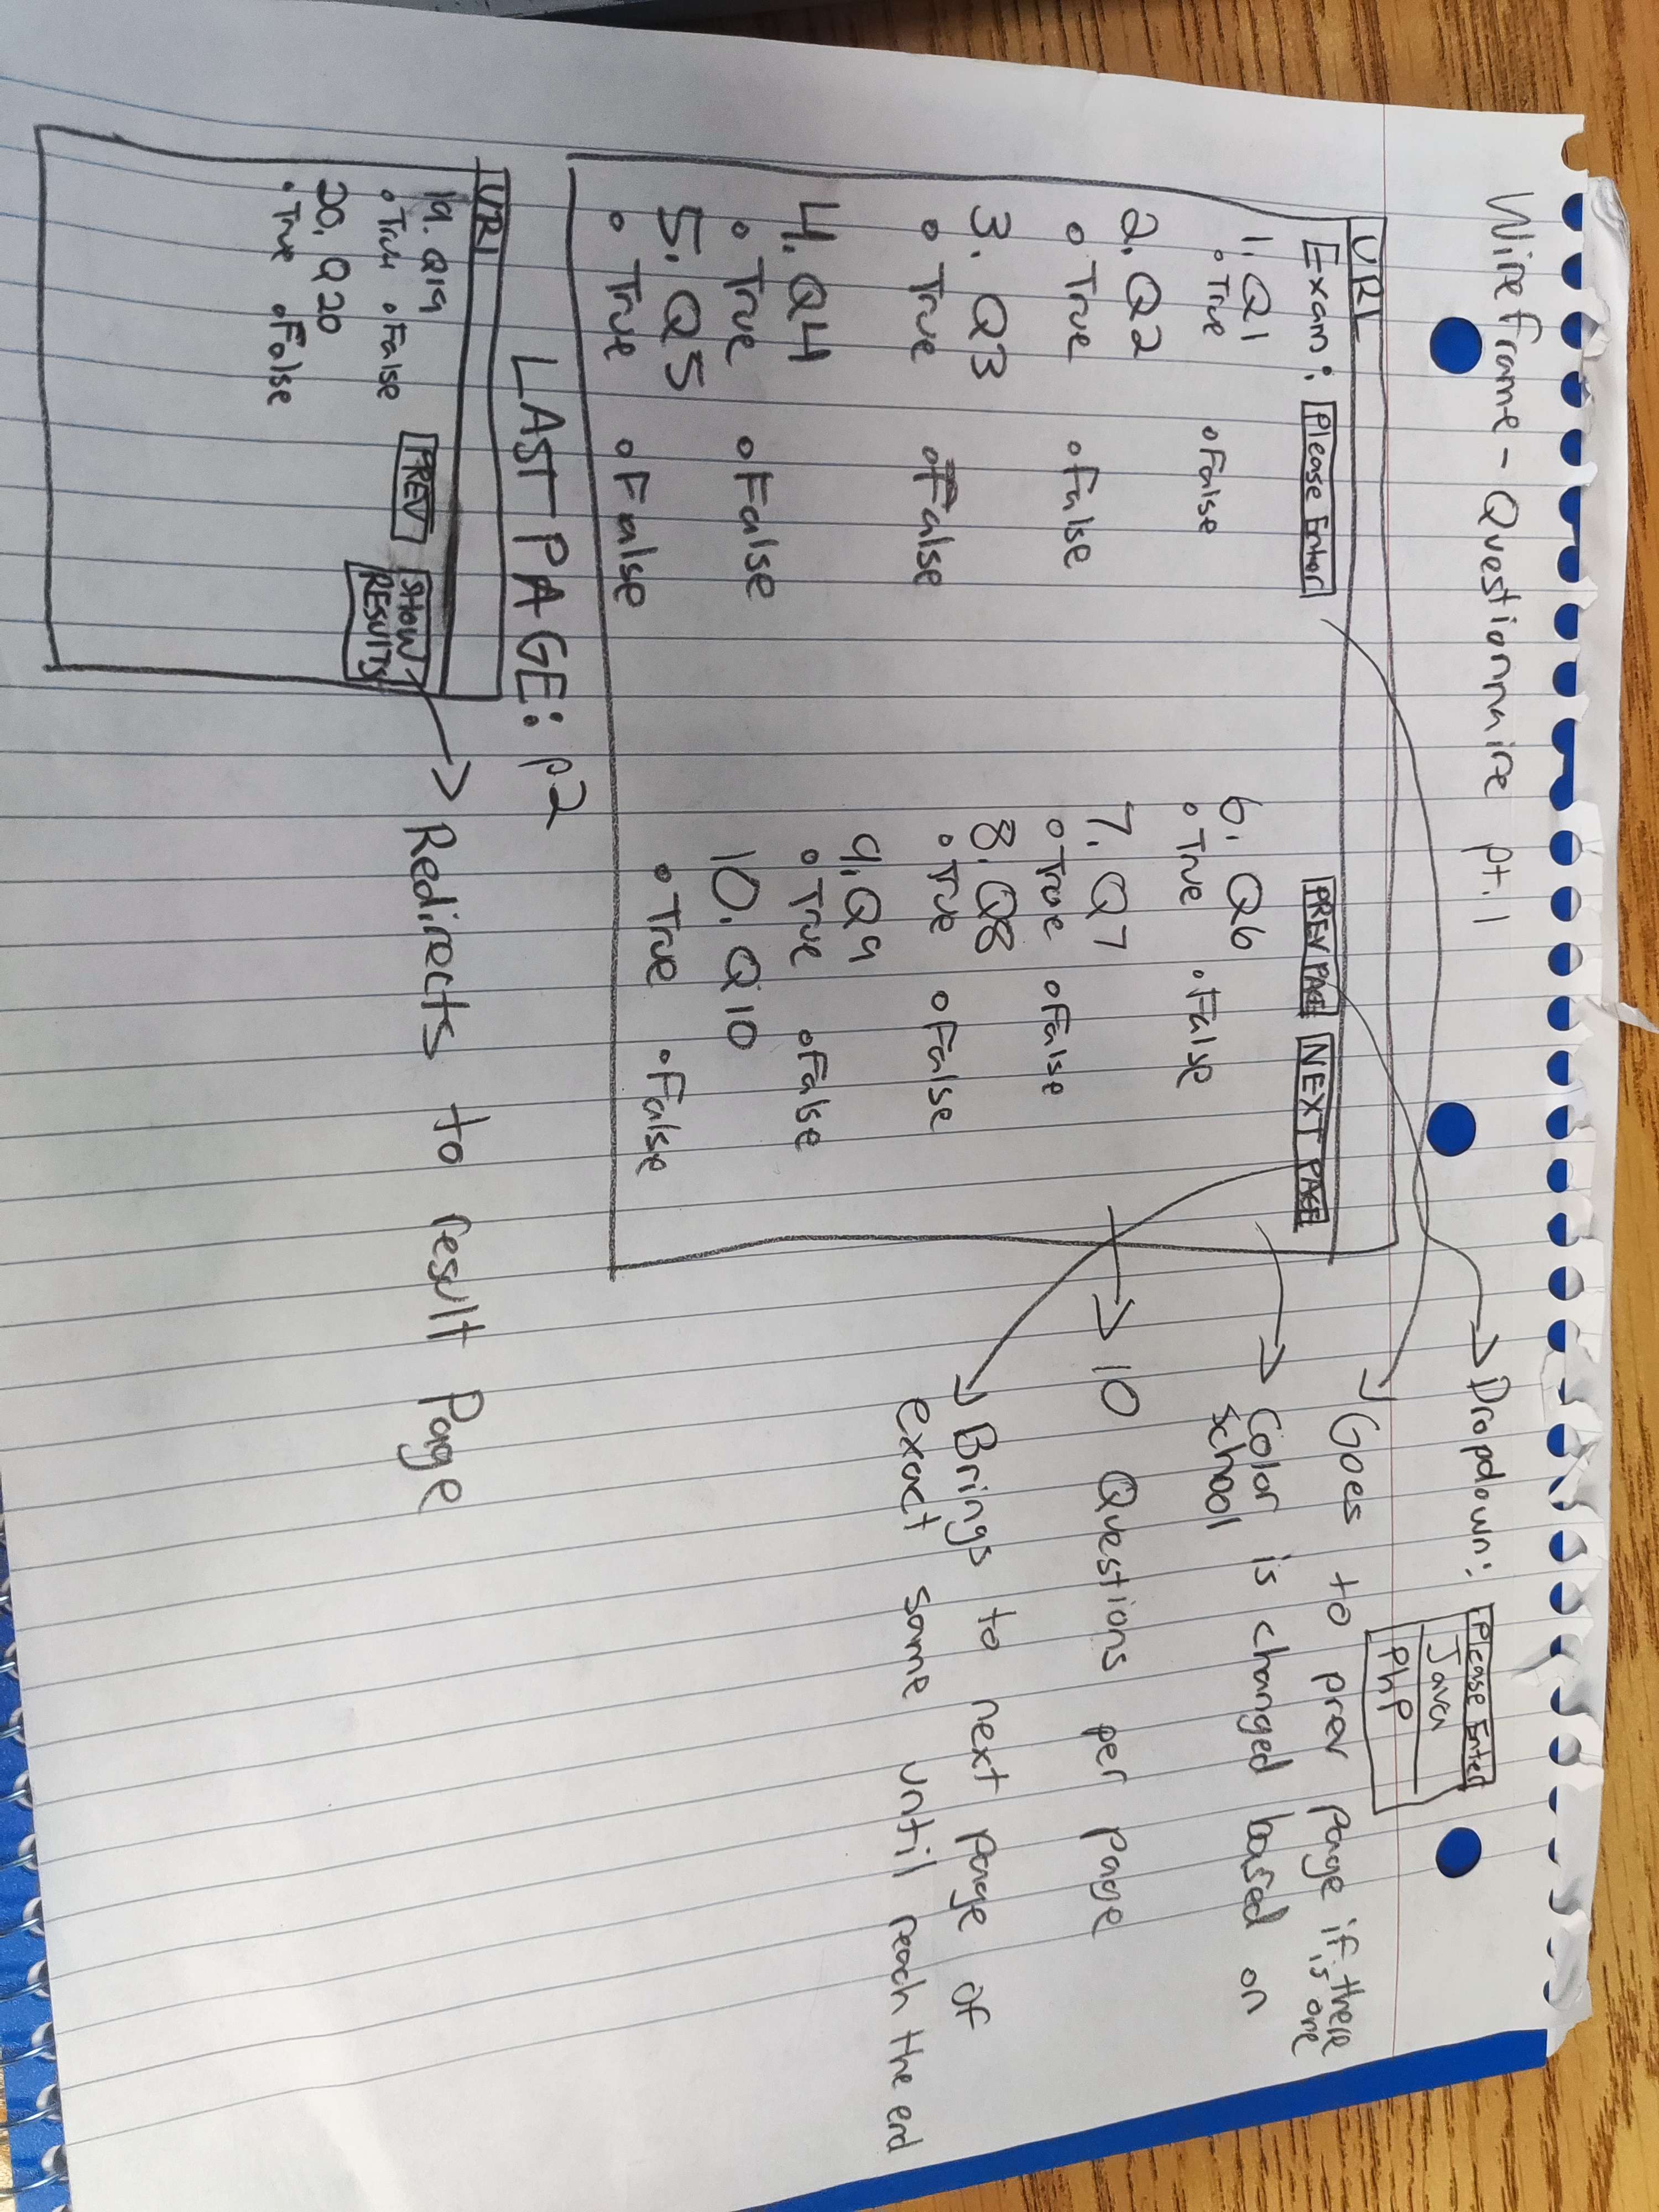 Wireframe - Questionnaire pt.1
URL
Exam: Please Enter
PREV PAGE NEXT PAGE
1. Q1
True False
2. Q2
True False
3. Q3
True False
4. Q4
True False
5. Q5
True False
6. Q6
True False
7. Q7
True False
8. Q8
True False
9. Q9
True False
10. Q10
True False
Dropdown: Please Enter
Java
PhP
Goes to prev page if there
is one
Color is changed based on
school
10 Questions per page
Brings to next page of
exact same until reach the end
LAST PAGE: p2
URL
19. Q19
True False
20. Q20
True False
PREV
SHOW
RESULTS
Redirects to result Page